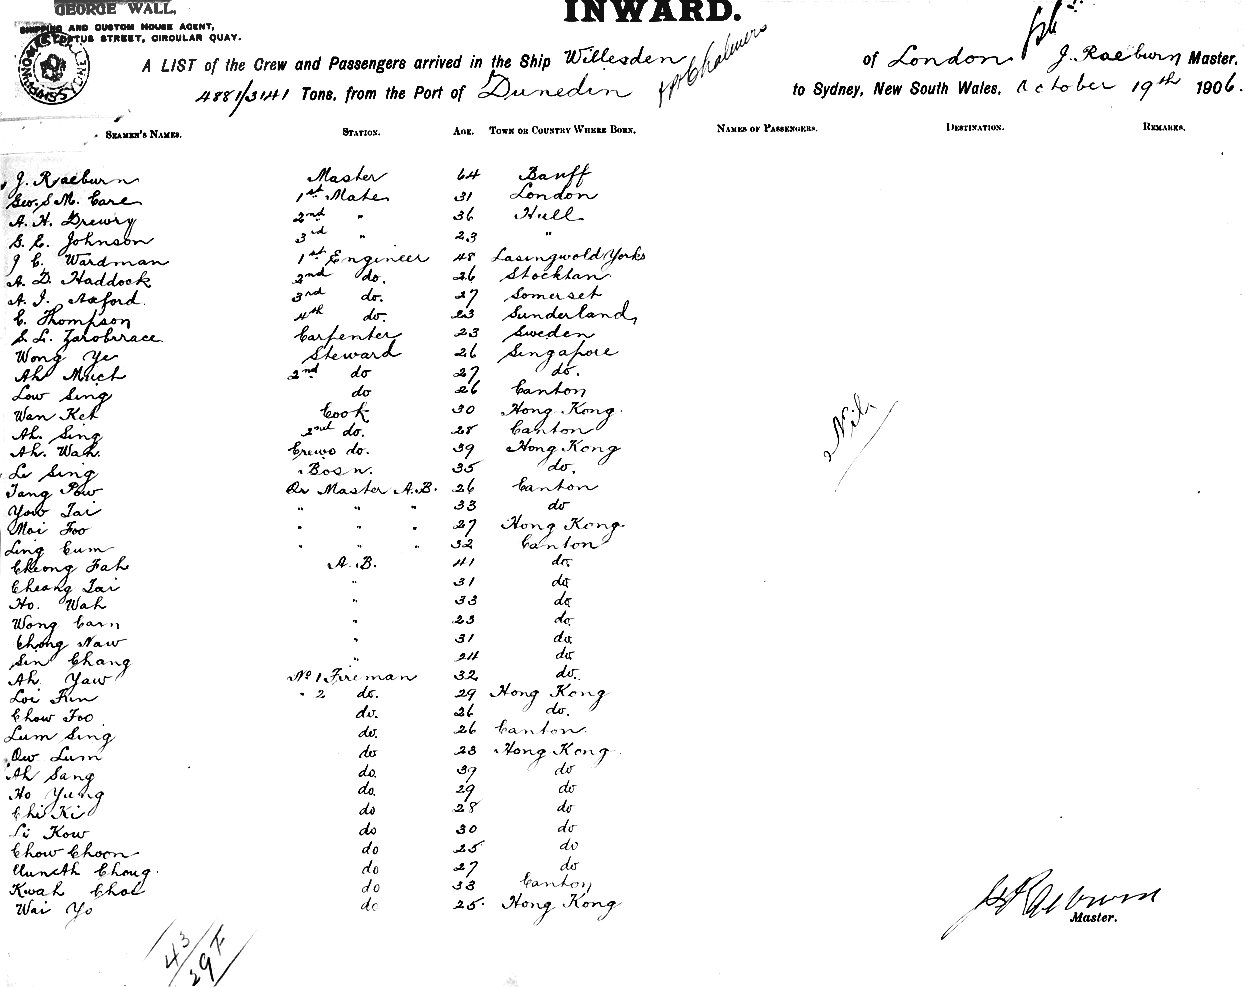 GEORGE WALL,
INWARD.
SHIPPING AND CUSTOM HOUSE AGENT,
STREET, CIRCULAR QUAY.
A LIST of the Crew and Passengers arrived in the Ship Willesden of London J. Raeburn Master,
4881/3141 Tons, from the Port of Dunedin Chalmers to Sydney, New South Wales, October 19th 1906.
SEAMEN'S NAMES. STATION. AGE. TOWN OR COUNTRY WHERE BORN. NAMES OF PASSENGERS. DESTINATION. REMARKS.
J. Raeburn Master 64 Banff
Geo. S. M. Care 1st Mate 31 London
A. H. Drewry 2nd " 36 Hull
Johnson 3rd " 23 "
J C. Wardman 1st Engineer 48 Yorks
A. D. Haddock 2nd do. 26 Stockton
A. J. Axford. 3rd do. 27 Somerset
C. Thompson 4th do. 23 Sunderland,
Carpenter 23 Sweden
Wong Ye Steward 26 Singapore
Ah Much 2nd do 27 do.
Low Sing do 26 Canton
Wan Ket Cook 30 Hong Kong.
Ah. Sing 2nd do. 28 Canton
Ah. Wah. Crews do. 39 Hong Kong
Le Sing Bosn. 35 do.
Tang Pow Qr Master A.B. 26 Canton
Yow Tai " " " 33 do
Moi Foo " " " 27 Hong Kong.
Ling Cum " " " 32 Canton
Cheong Fah A.B. 41 do
Cheang Tai " 31 do
Ho. Wah " 33 do
Wong Carn " 23 do
Chong Naw " 31 do
Sin Chang " 24 do
Ah. Yaw No 1 Fireman 32 do.
Loi Fun " 2 do. 29 Hong Kong
Chow Foo do. 26 do.
Lum Sing do. 26 Canton.
Lum do 23 Hong Kong.
Ah Sang do. 39 do
Ho Yung do. 29 do
Chi Ki do 28 do
Li Kow do 30 do
Chow Choon do 25 do
Chong. do 27 do
Kwah Choi do 33 Canton
Wai Yo do 25. Hong Kong
Nil
J Raeburn
Master.
43
29